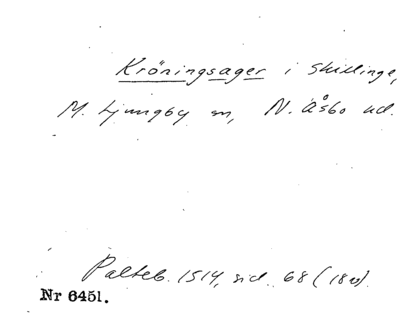 Kröningsager i Skillinge,
M. Ljungby sn, N. Åsbo hd.
Palteb. 1514, sid. 68 (180).
Nr 6451.